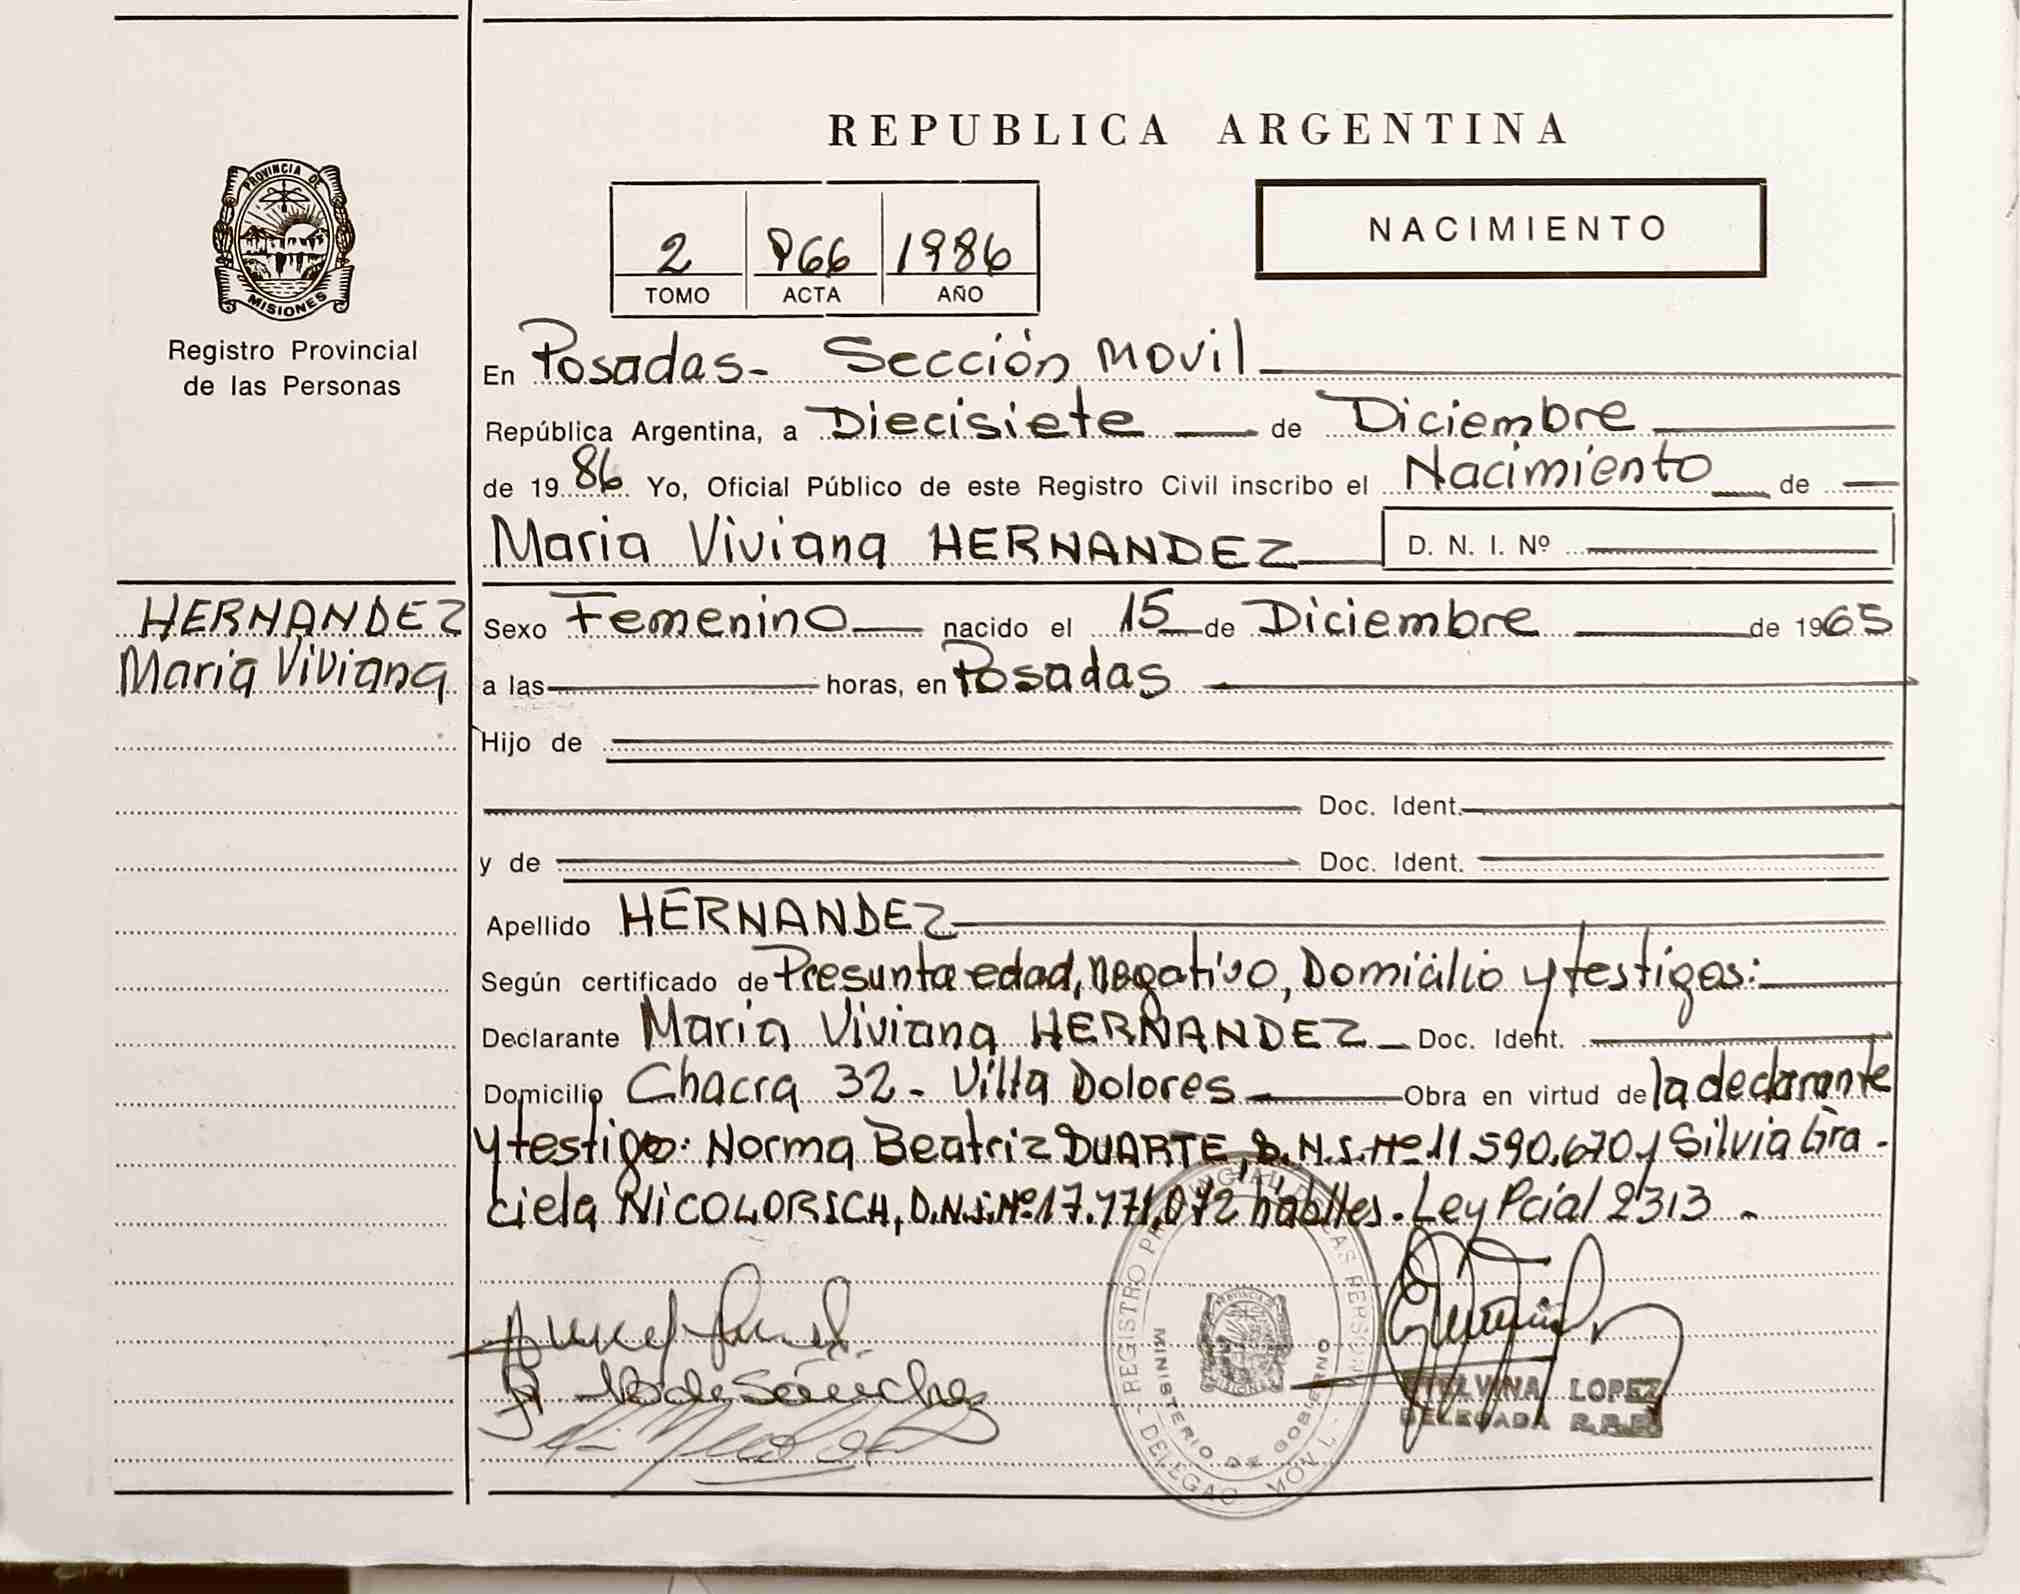 REPUBLICA ARGENTINA
PROVINCIA DE
MISIONES
Registro Provincial
de las Personas
NACIMIENTO
2 966 1986
TOMO ACTA AÑO
En Posadas- Sección Movil
República Argentina, a Diecisiete de Diciembre
de 1986 Yo, Oficial Público de este Registro Civil inscribo el Nacimiento de
Maria Viviana HERNANDEZ D. N. I. Nº
HERNANDEZ
Maria Viviana
Sexo Femenino nacido el 15 de Diciembre de 1965
a las horas, en Posadas
Hijo de
Doc. Ident.
y de Doc. Ident.
Apellido HERNANDEZ
Según certificado de Presunta edad, negativo, Domicilio y testigos:
Declarante Maria Viviana HERNANDEZ Doc. Ident.
Domicilio Chacra 32 - Villa Dolores Obra en virtud de la declarante
y testigo: Norma Beatriz DUARTE, D.N.I. Nº 11.590.670 y Silvia Gra-
ciela NICOLORICH, D.N.I. Nº 17.771.072 habiles. Ley Pcial 2313 -
REGISTRO PROVINCIAL DE LAS PERSONAS
MINISTERIO DE GOBIERNO
MOVIL
ETELVINA LOPEZ
DELEGADA R.P.P.